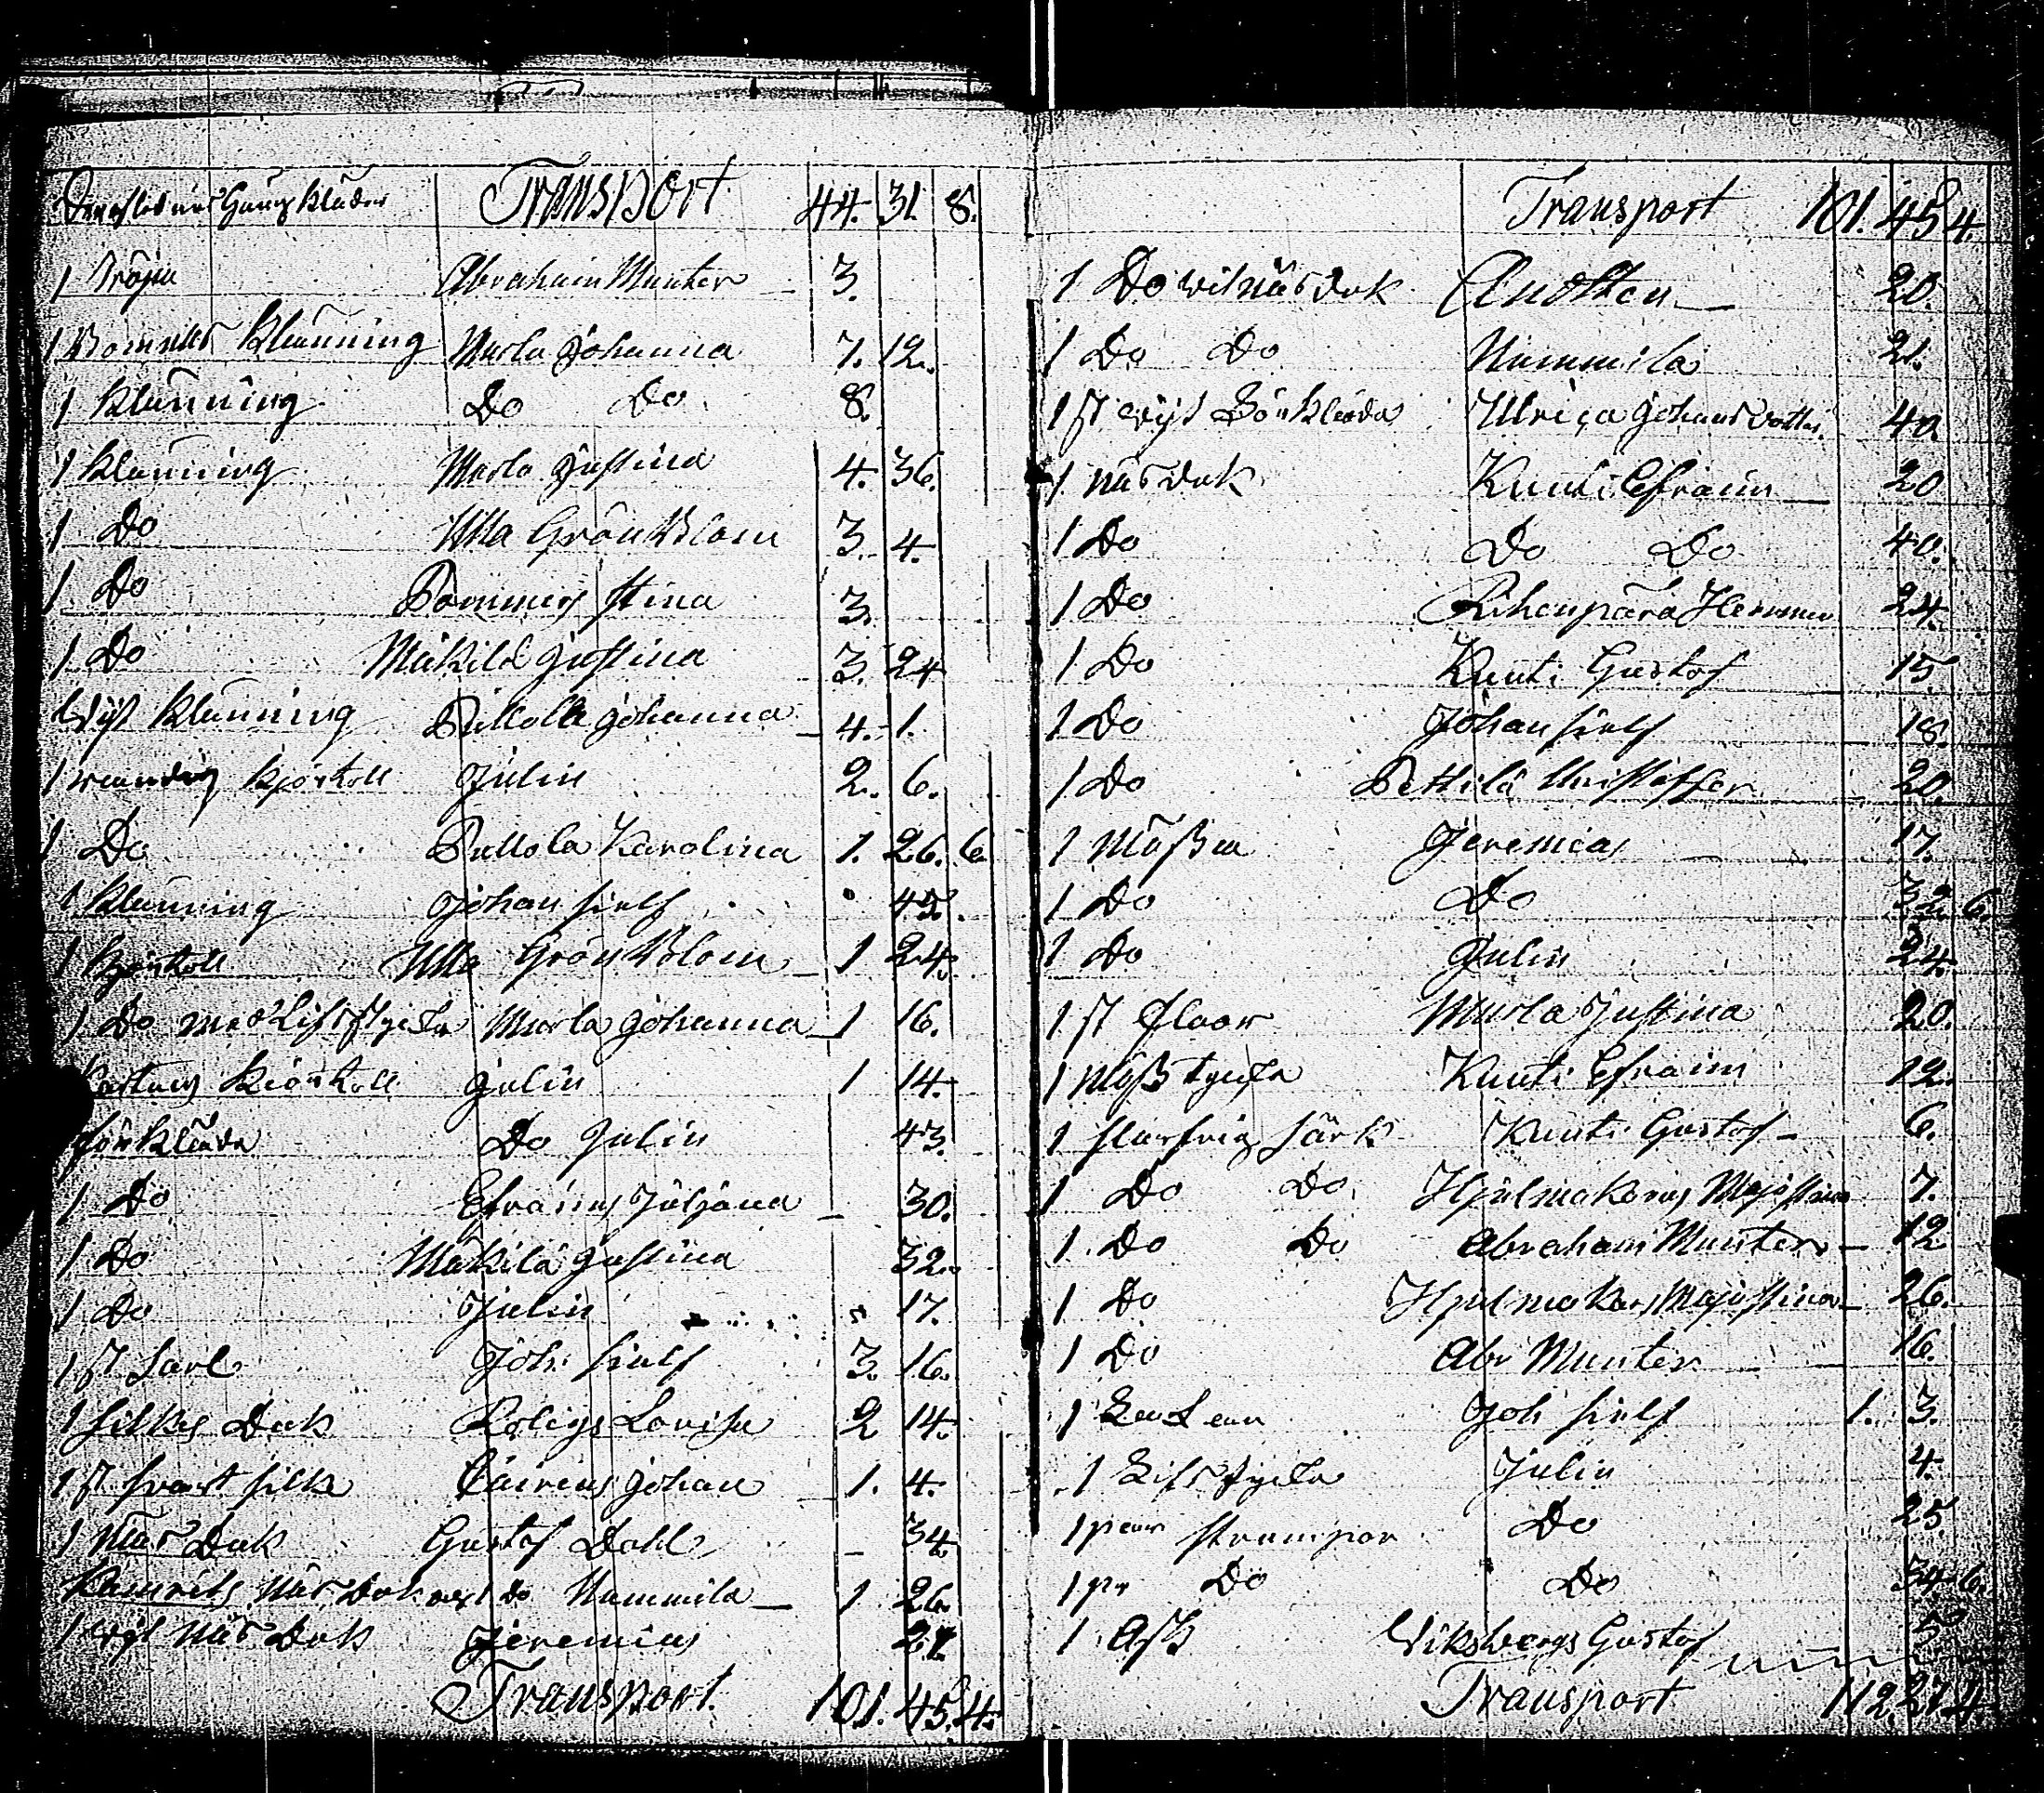 Gång Kläder Transport 44. 31. 8.
1 Tröija Abraham Munter 3.
1 Bomulls Klänning Marla Johanna 7. 12.
1 Klänning Do Do 8.
1 Klänning Marla Justina 4. 36.
1 Do Ulla Grönblom 3. 4.
1 Do Pommers Stina 3.
1 Do Mäkilä Justina 3. 24
Wijt Klänning Pullola Johanna 4. 1.
1 Kjortell Julin 2. 6.
1 Do Pullola Karolina 1. 26. 6
1 Klänning Johan sielf 45.
1 Kjortell Ulla Grönblom 1 24.
1 Do med Lifstycke Marla Johanna 1 16.
Kartuns Kiortell Julin 1 14.
Förkläde Do Julin 43.
1 Do Efraims Juljana 30.
1 Do Mäkilä Justina 32.
1 Do Julin 17.
1 st Sarl Joh: sielf 3. 16.
1 Silkes Duk Roligs Lovisa 2 14.
1 st svart silk Johan 1. 4.
1 Näs Duk Gustaf Dahl 34.
Kamriks Näs Duk Do Nummila 1 26.
1 wijt Näs Duk Jeremias
Transport 101. 45. 4.
Transport 101. 45 4.
1 Do wit näsduk Anolten 20.
1 Do Do Nummila 21.
1 st wijt Förkläde Ulrica Johansdotter 40
1 näsduk Kunti Efraim 20
1 Do Do Do 40.
1 Do Rihenperä Hemmer 24.
1 Do Kunti Gustaf 15.
1 Do Johan sielf 18.
1 Do Pettilä Christoffer 20.
1 Mössa Jeremias 17.
1 Do Do 32. 6.
1 Do Julin 24.
1 st Flaor Marla Justina 20.
1 Möss tycke Kunti Efraim 12.
1 Särk Kunti Gustaf 6.
1 Do Do Hjulmakarns Maja Stina 7.
1 Do Do Abraham Munter 12
1 Do Hjulmakars Maja Stina 26.
1 Do Abr Munter 16.
1 Joh sielf 1. 3.
1 Lifstycke Julin 4.
1 par strumpor Do 25.
1 pr Do Do 34. 6.
1 Ask Wiksbergs Gustaf 5
Transport 112. 27. 4.